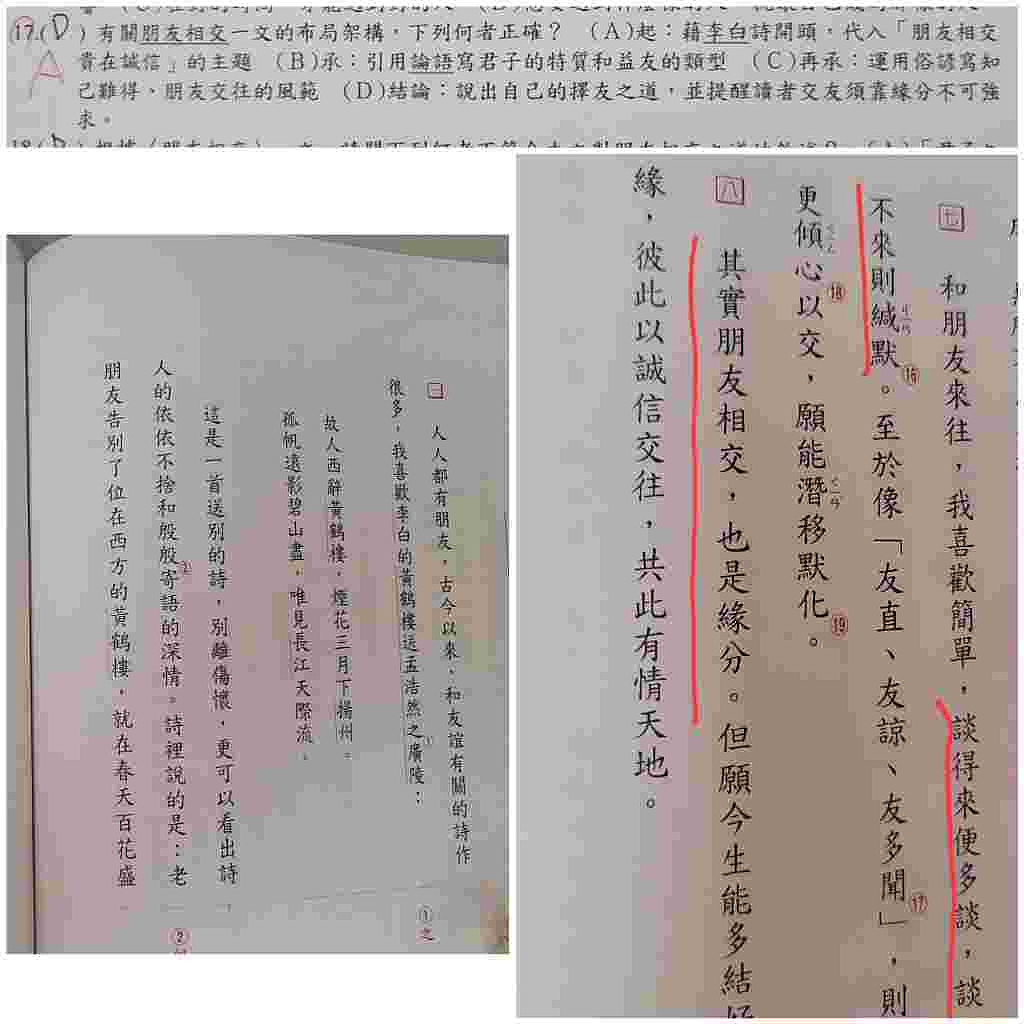 17.(D)有關朋友相交一文的布局架構，下列何者正確？ (A)起：藉李白詩開頭，代入「朋友相交
A
貴在誠信」的主題 (B)承：引用論語寫君子的特質和益友的類型 (C)再承：運用俗諺寫知
己難得、朋友交往的風範 (D)結論：說出自己的擇友之道，並提醒讀者交友須靠緣分不可強
求。
一
人人都有朋友，古今以來，和友誼有關的詩作
很多，我喜歡李白的黃鶴樓送孟浩然之廣陵①：
故人西辭黃鶴樓，煙花三月下揚州。
孤帆遠影碧山盡，唯見長江天際流。
這是一首送別的詩，別離傷懷，更可以看出詩
人的依依不捨和殷殷寄語②的深情。詩裡說的是：老
朋友告別了位在西方的黃鶴樓，就在春天百花盛
①之
②
七
和朋友來往，我喜歡簡單，談得來便多談，談
不來則緘ㄐㄧㄢ默⑯。至於像「友直、友諒、友多聞」⑰，則
更傾ㄑㄧㄥ心⑱以交，願能潛ㄑㄧㄢˊ移默化⑲。
八
其實朋友相交，也是緣分。但願今生能多結好
緣，彼此以誠信交往，共此有情天地。